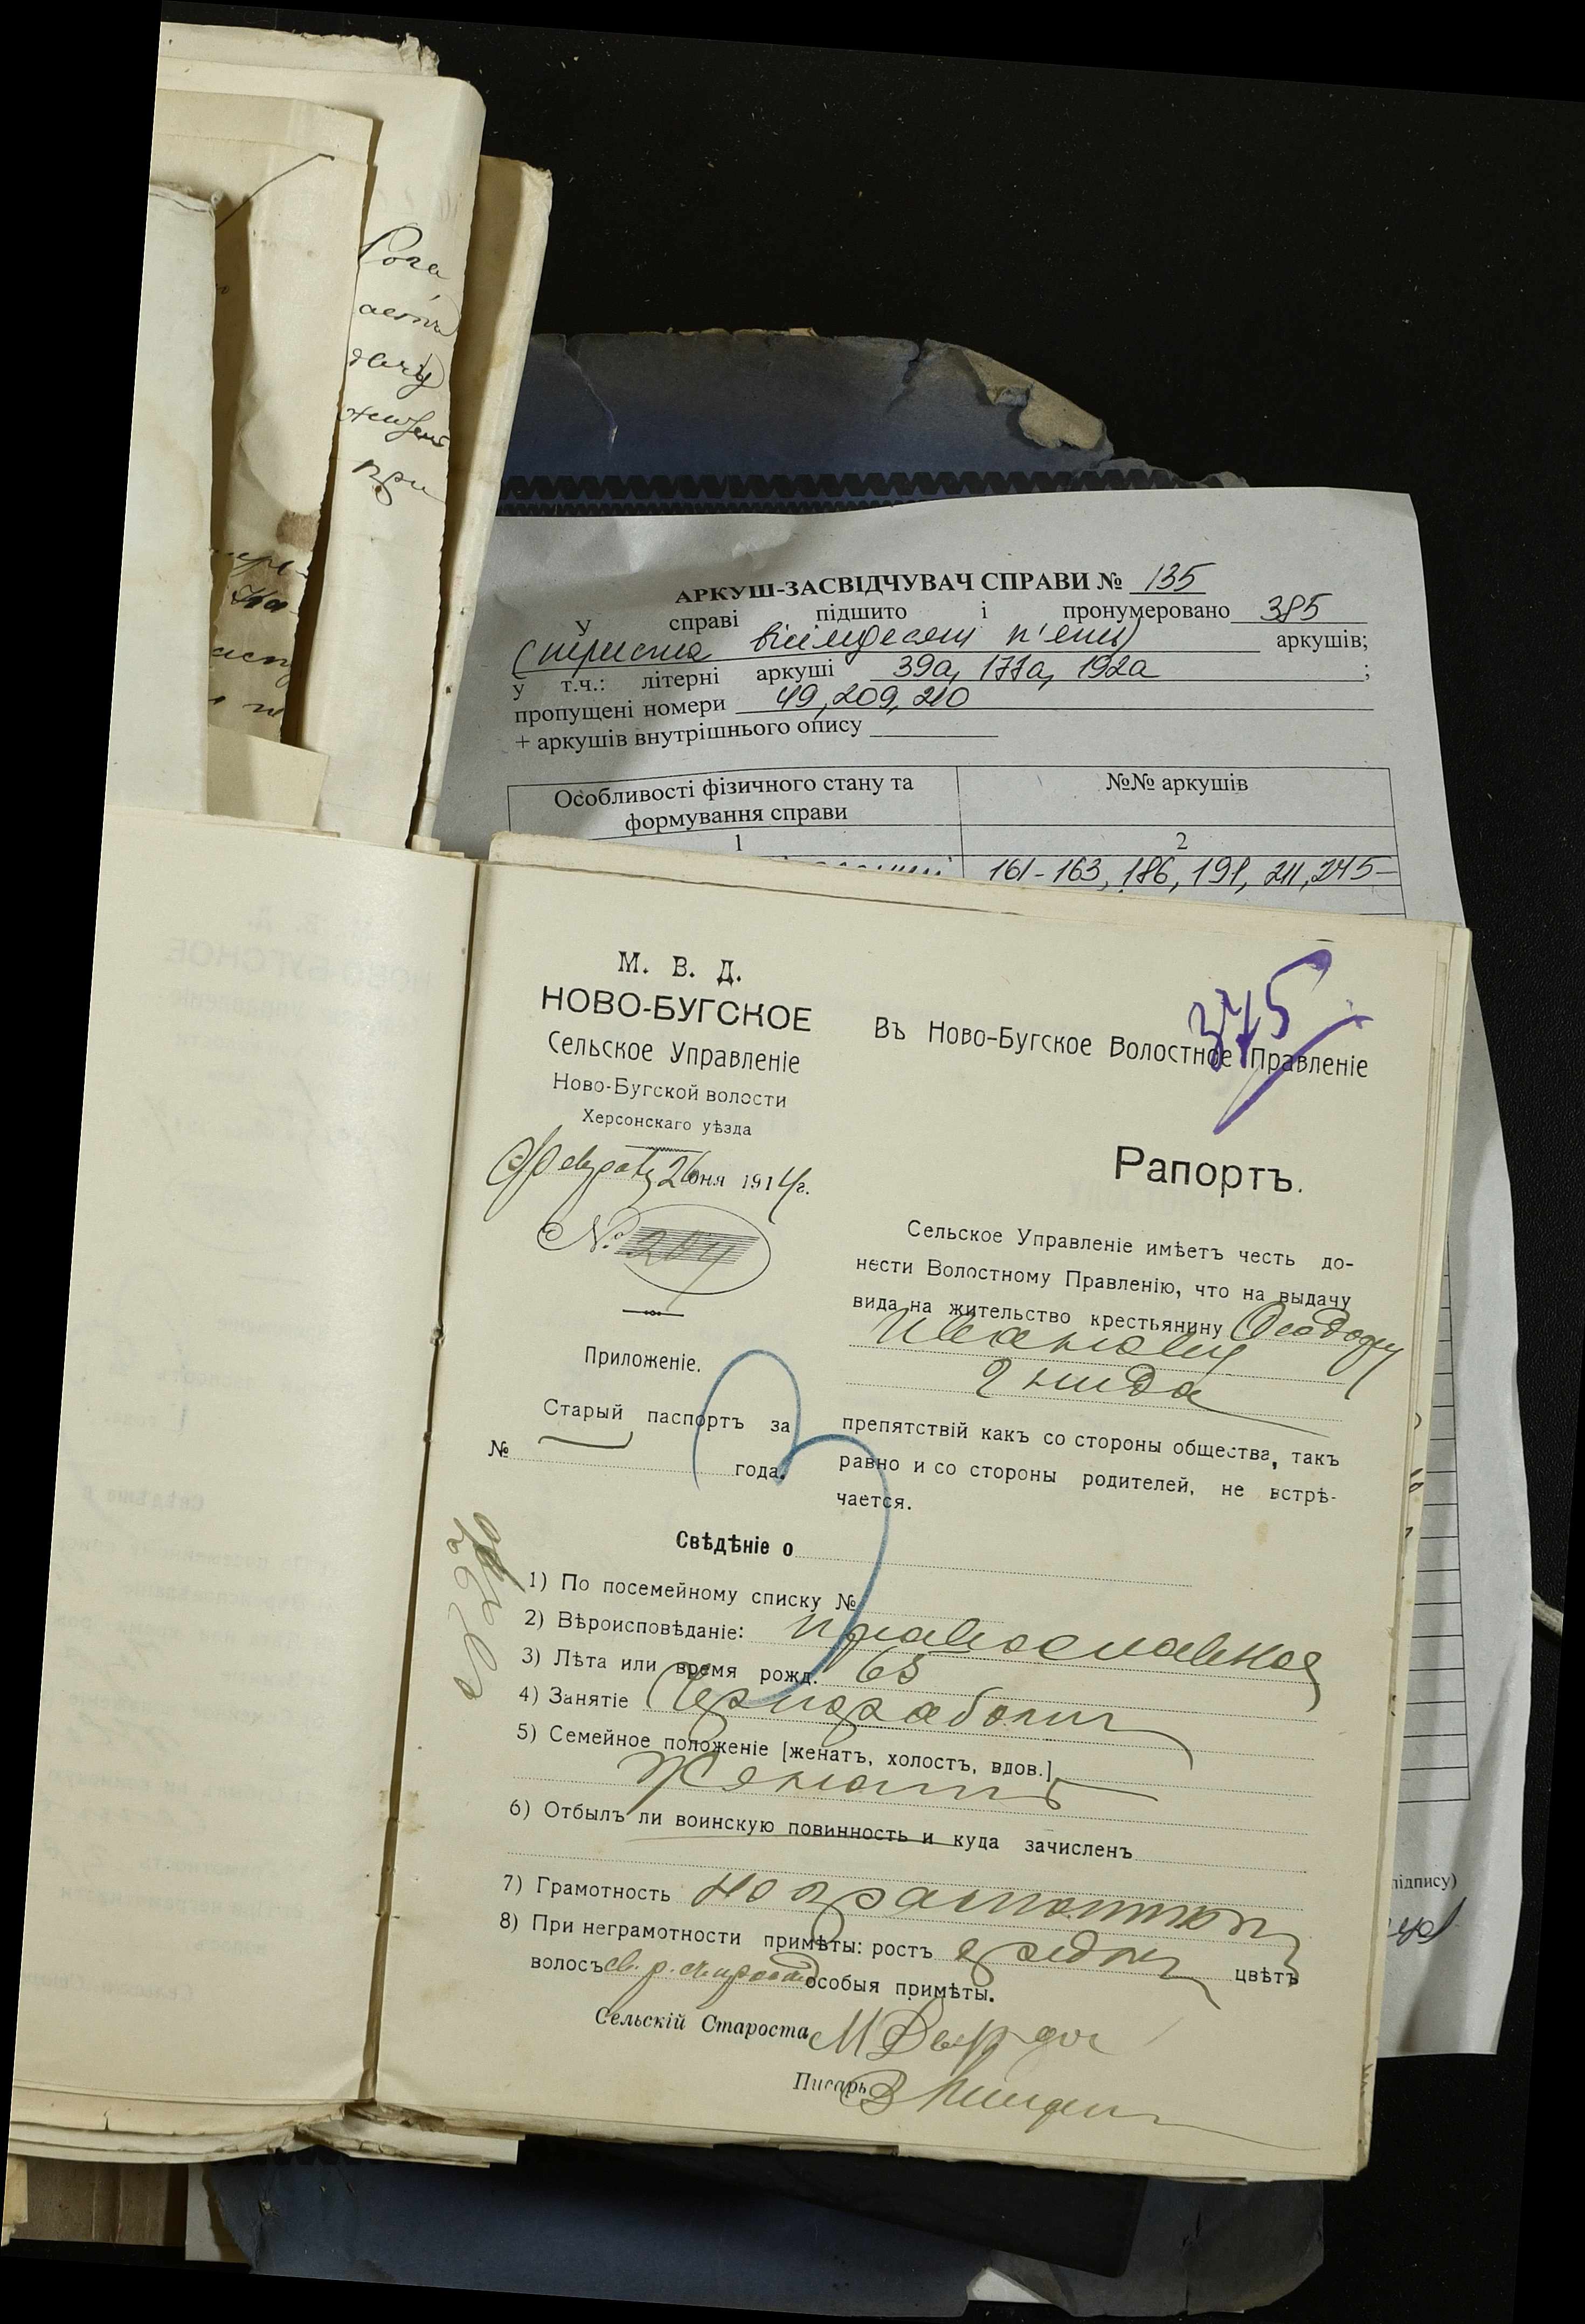 Рога
при
АРКУШ-ЗАСВІДЧУВАЧ СПРАВИ № 135
У справі підшито і пронумеровано 385
(триста вісімдесят п'ять) аркушів;
у т.ч.: літерні аркуші 39а, 177а, 192а ;
пропущені номери 49, 209, 210
+ аркушів внутрішнього опису
Особливості фізичного стану та
формування справи
№№ аркушів
1
2
161-163, 186, 191, 211, 245-
підпису)
375
М. В. Д.
НОВО-БУГСКОЕ
Сельское Управленіе
Ново-Бугской волости
Херсонскаго уѣзда
26 дня 1914 г.
№ 204
Въ Ново-Бугское Волостное Правленіе
Рапортъ.
Сельское Управленіе имѣетъ честь до-
нести Волостному Правленію, что на выдачу
вида на жительство крестьянину Феодору
Иванову
Гнида
препятствій какъ со стороны общества, такъ
равно и со стороны родителей, не встрѣ-
чается.
Приложеніе.
Старый паспортъ за
№ года.
Свѣдѣніе о
1) По посемейному списку №
2) Вѣроисповѣданіе: православная
3) Лѣта или время рожд. 65
4) Занятіе Чернорабочи
5) Семейное положеніе [женатъ, холостъ, вдов.]
Женатъ
6) Отбылъ ли воинскую повинность и куда зачисленъ
7) Грамотность неграмотный
8) При неграмотности примѣты: ростъ средній цвѣтъ
волосъ св. р. особыя примѣты.
Сельскій Староста
Писарь